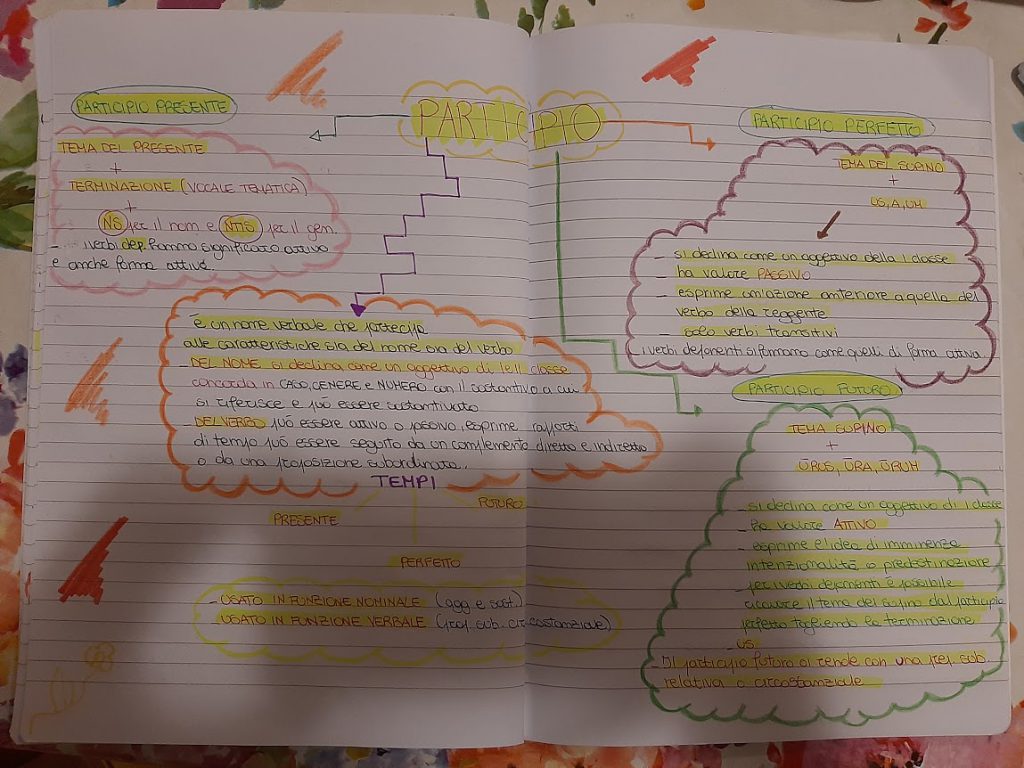 PARTICIPIO
PARTICIPIO PRESENTE
TEMA DEL PRESENTE
+
TERMINAZIONE (VOCALE TEMATICA)
+
NS per il nom e NTIS per il gen.
- i verbi dep. hanno significato attivo
e anche forma attiva.
è un nome verbale che partecipa
alle caratteristiche sia del nome sia del verbo
- DEL NOME si declina come un aggettivo di I e II classe
concorda in CASO, GENERE e NUMERO con il sostantivo a cui
si riferisce e può essere sostantivato
- DEL VERBO può essere attivo o passivo, esprime rapporti
di tempo può essere seguito da un complemento diretto e indiretto
o da una proposizione subordinata.
TEMPI
PRESENTE
PERFETTO
FUTURO
- USATO IN FUNZIONE NOMINALE (agg e sost.)
USATO IN FUNZIONE VERBALE (prop. sub. circostanziale)
PARTICIPIO PERFETTO
TEMA DEL SUPINO
+
US, A, UM
- si declina come un aggettivo della I classe
ha valore PASSIVO
- esprime un'azione anteriore a quella del
verbo della reggente
- solo verbi transitivi
i verbi deponenti si formano come quelli di forma attiva
PARTICIPIO FUTURO
TEMA SUPINO
+
ŪRUS, ŪRA, ŪRUM
- si declina come un aggettivo di I classe
- ha valore ATTIVO
- esprime l'idea di imminenza
intenzionalità o predestinazione
- per i verbi deponenti è possibile
ricavare il tema del supino dal participio
perfetto togliendo la terminazione
US.
- Il participio futuro si rende con una prop. sub.
relativa o circostanziale